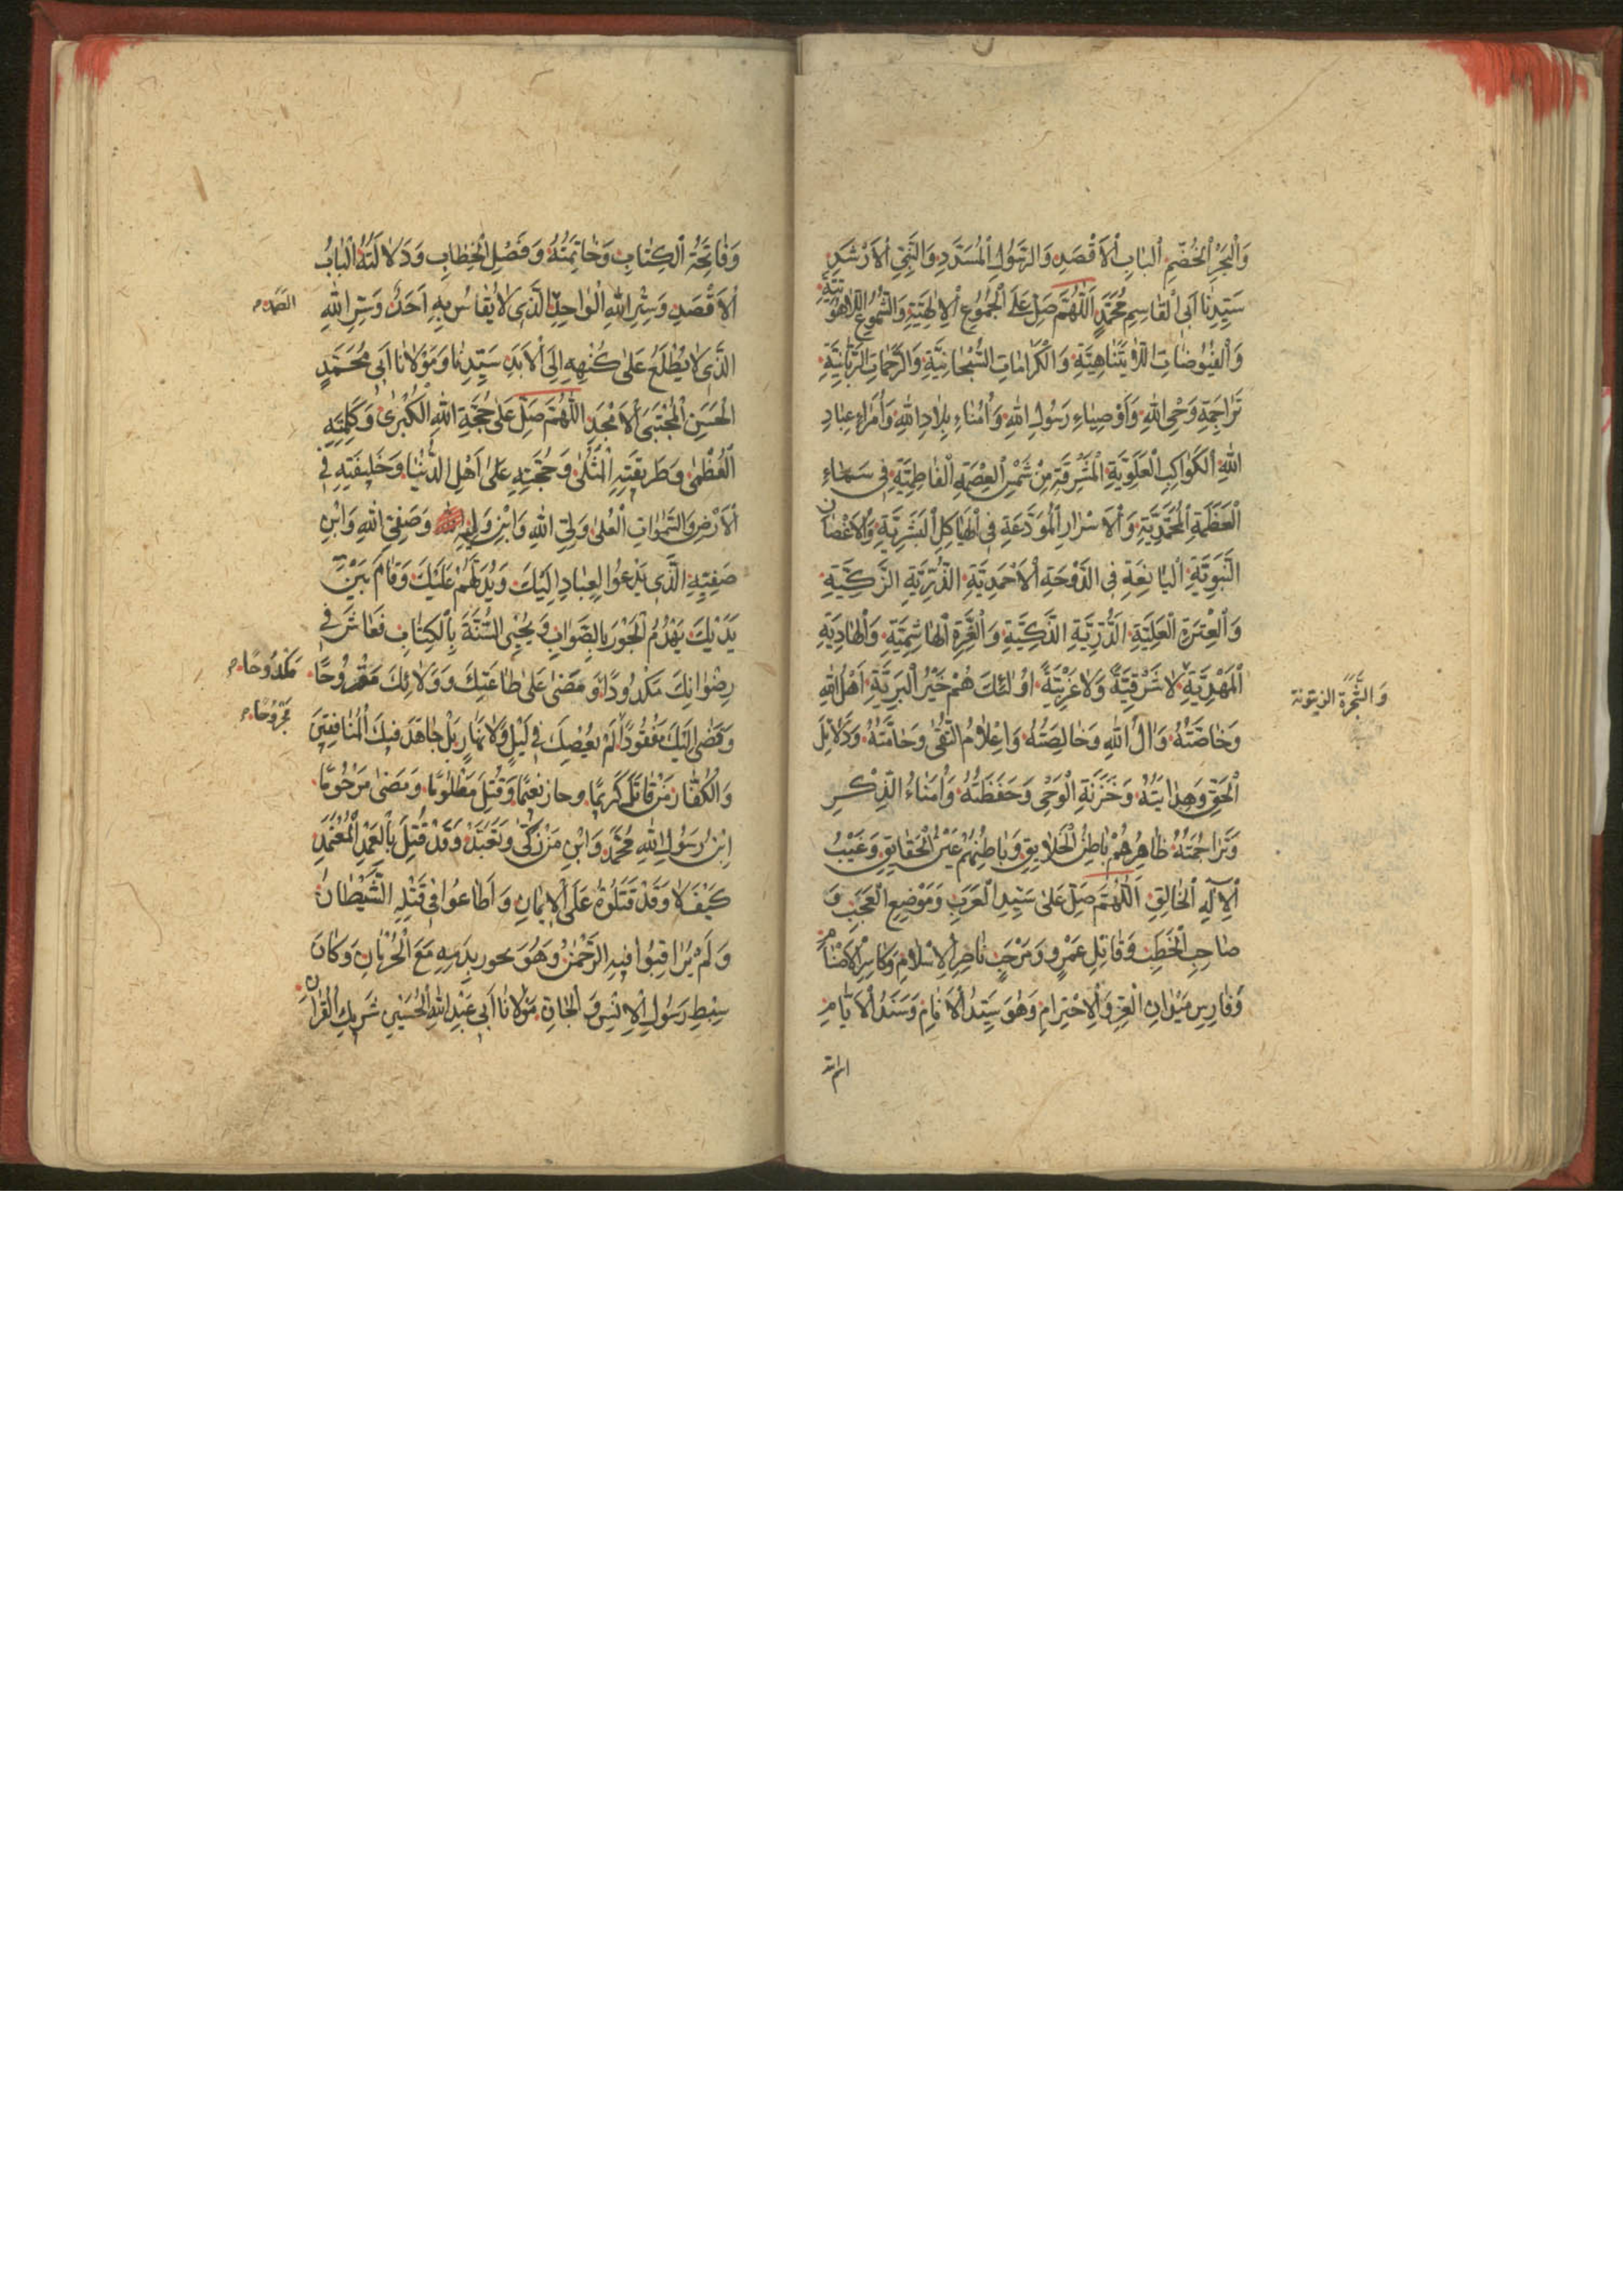 وَالْبَحْرِ الْخِضَمِّ الْبَابِ الْاَقْصَدِ وَالرَّسُولِ الْمُسَدَّدِ وَالنَّبِيِّ الْاَرْشَدِ
سَيِّدِنَا اَبِى الْقَاسِمِ مُحَمَّدٍ اَللّٰهُمَّ صَلِّ عَلَى الْجُمُوعِ الْاِلٰهِيَّةِ وَالشُّمُوعِ اللَّاهُوتِيَّةِ
وَالْفُيُوضَاتِ اللَّايَتَنَاهِيَّةِ وَالْكَرَامَاتِ السُّبْحَانِيَّةِ وَالرَّحَمَاتِ الرَّبَّانِيَّةِ
تَرَاجِمَةِ وَحْىِ اللهِ وَأَوْصِيَاءِ رَسُولِ اللهِ وَاُمَنَاءِ بِلَادِ اللهِ وَاُمَرَاءِ عِبَادِ
اللهِ الْكَوَاكِبِ الْعَلَوِيَّةِ الْمُشْرِقَةِ مِنْ شَمْسِ الْعِصْمَةِ الْفَاطِمِيَّةِ فِى سَمَاءِ
الْعَظَمَةِ الْمُحَمَّدِيَّةِ وَالْاَسْرَارِ الْمُوَدَّعَةِ فِى الْهَيَاكِلِ الْبَشَرِيَّةِ وَالْاَغْصَانِ
النَّبَوِيَّةِ الْيَانِعَةِ فِى الدَّوْحَةِ الْاَحْمَدِيَّةِ الذُّرِّيَّةِ الزَّكِيَّةِ
وَالْعِتْرَةِ الْعَلِيَّةِ الدُّرِّيَّةِ الذَّكِيَّةِ وَالْغُرَّةِ الْهَاشِمِيَّةِ وَالْهَادِيَةِ
الْمَهْدِيَّةِ لَا شَرْقِيَّةً وَلَا غَرْبِيَّةً اُولٰئِكَ هُمْ خَيْرُ الْبَرِيَّةِ اَهْلُ اللهِ
وَالشَّجَرَةِ الزيتونة
وَخَاصَّتُهُ وَالُ اللهِ وَخَالِصَتُهُ وَاعْلَامُ التُّقٰى وَحَامَّتُهُ وَدَلَائِلُ
الْحَقِّ وَهِدَايَتُهُ وَخَزَنَةِ الْوَحْىِ وَحَفَظَتُهُ وَاُمَنَاءُ الذِّكْرِ
وَتَرَاجُمَتُهُ ظَاهِرُهُمْ بَاطِنُ الْخَلَايِقِ وَبَاطِنُهُمْ عَيْنُ الْحَقَايِقِ وَغَيْبُ
الْاِلٰهِ الْخَالِقِ اَللّٰهُمَّ صَلِّ عَلٰى سَيِّدِ الْعَرَبِ وَمَوْضِعِ الْعَجَبِ وَ
صَاحِبِ الْخُطَبِ وَقَاتِلِ عَمْرٍو وَمَرْحَبٍ نَاصِرِ الْاِسْلَامِ وَكَاسِرِ الْاَصْنَامِ
وَفَارِسِ مَيْدَانِ الْعِزِّ وَالْاِحْتِرَامِ وَهُوَ سَيِّدُ الْاَنَامِ وَسَنَدُ الْاَيَّامِ
وَفَاتِحَةُ الْكِتَابِ وَخَاتِمَتُهُ وَفَصْلِ الْخِطَابِ وَدَلَالَتُهُ الْبَابُ
الْاَقْصَدِ وَسِرِّ اللهِ الْوَاحِدِ الَّذِى لَا يُقَاسُ بِهِ اَحَدٌ وَسِرِّ اللهِ
الصمد
الَّذِى لَا يُطْلَعُ عَلٰى كُنْهِهِ اِلَى الْاَبَدِ سَيِّدِنَا وَمَوْلَانَا اَبِى مُحَمَّدٍ
الْحَسَنِ الْمُجْتَبَى الْاَمْجَدِ اَللّٰهُمَّ صَلِّ عَلٰى حُجَّةِ اللهِ الْكُبْرٰى وَكَلِمَتِهِ
الْعُظْمٰى وَطَرِيقَتِهِ الْمُثْلٰى وَحُجَّتِهِ عَلٰى اَهْلِ الدُّنْيَا وَخَلِيفَتِهِ فِى
الْاَرْضِ وَالسَّمٰوَاتِ الْعُلٰى وَلِىِّ اللهِ وَابْنِ وَلِيِّهِ وَصَفِىِّ اللهِ وَابْنِ
صَفِيِّهِ الَّذِى يَدْعُوا الْعِبَادِ اِلَيْكَ وَيُدِلُّهُمْ عَلَيْكَ وَقَامَ بَيْنَ
يَدَيْكَ يَهْدُمُ الْجَوْرَ بِالصَّوَابِ وَيُحْيِى السُّنَّةَ بِالْكِتَابِ فَعَاشَ فِى
رِضْوَانِكَ مَكْدُودًا وَمَضٰى عَلٰى طَاعَتِكَ وَوَلَائِكَ مَقْرُوحًا
مَكْدُوحًا
وَقَضٰى اِلَيْكَ مَفْقُودًا لَمْ يَعْصِكَ فِى لَيْلٍ وَلَا نَهَارٍ بَلْ جَاهَدَ فِيكَ الْمُنَافِقِينَ
مَجْرُوحًا
وَالْكُفَّارَ مَنْ قَاتَلَ كَرِيمًا وحاز نَعِيمًا وَقُتِلَ مَظْلُومًا وَمَضٰى مَرْحُومًا
اِبْنُ رَسُولِ اللهِ مُحَمَّدٍ وَابْنِ مَنْ زَكّٰى وَتَعَبَّدَ وَقَدْ قُتِلَ بِالْعَمْدِ الْمُعْتَمَدِ
كَيْفَ لَا وَقَدْ قَتَلُوهُ عَلَى الْاِيمَانِ وَاَطَاعُوا فِى قَتْلِهِ الشَّيْطَانَ
وَلَمْ يُرَاقِبُوا فِيهِ الرَّحْمٰنَ وَهُوَ بِدَمِهِ مَعَ الْحُرْمَانِ وَكَانَ
سِبْطِ رَسُولِ الْاِنْسِ وَالْجَانِ مَوْلَانَا اَبِى عَبْدِ اللهِ الْحُسَيْنِ شَرِيكِ الْقُرْاٰنِ